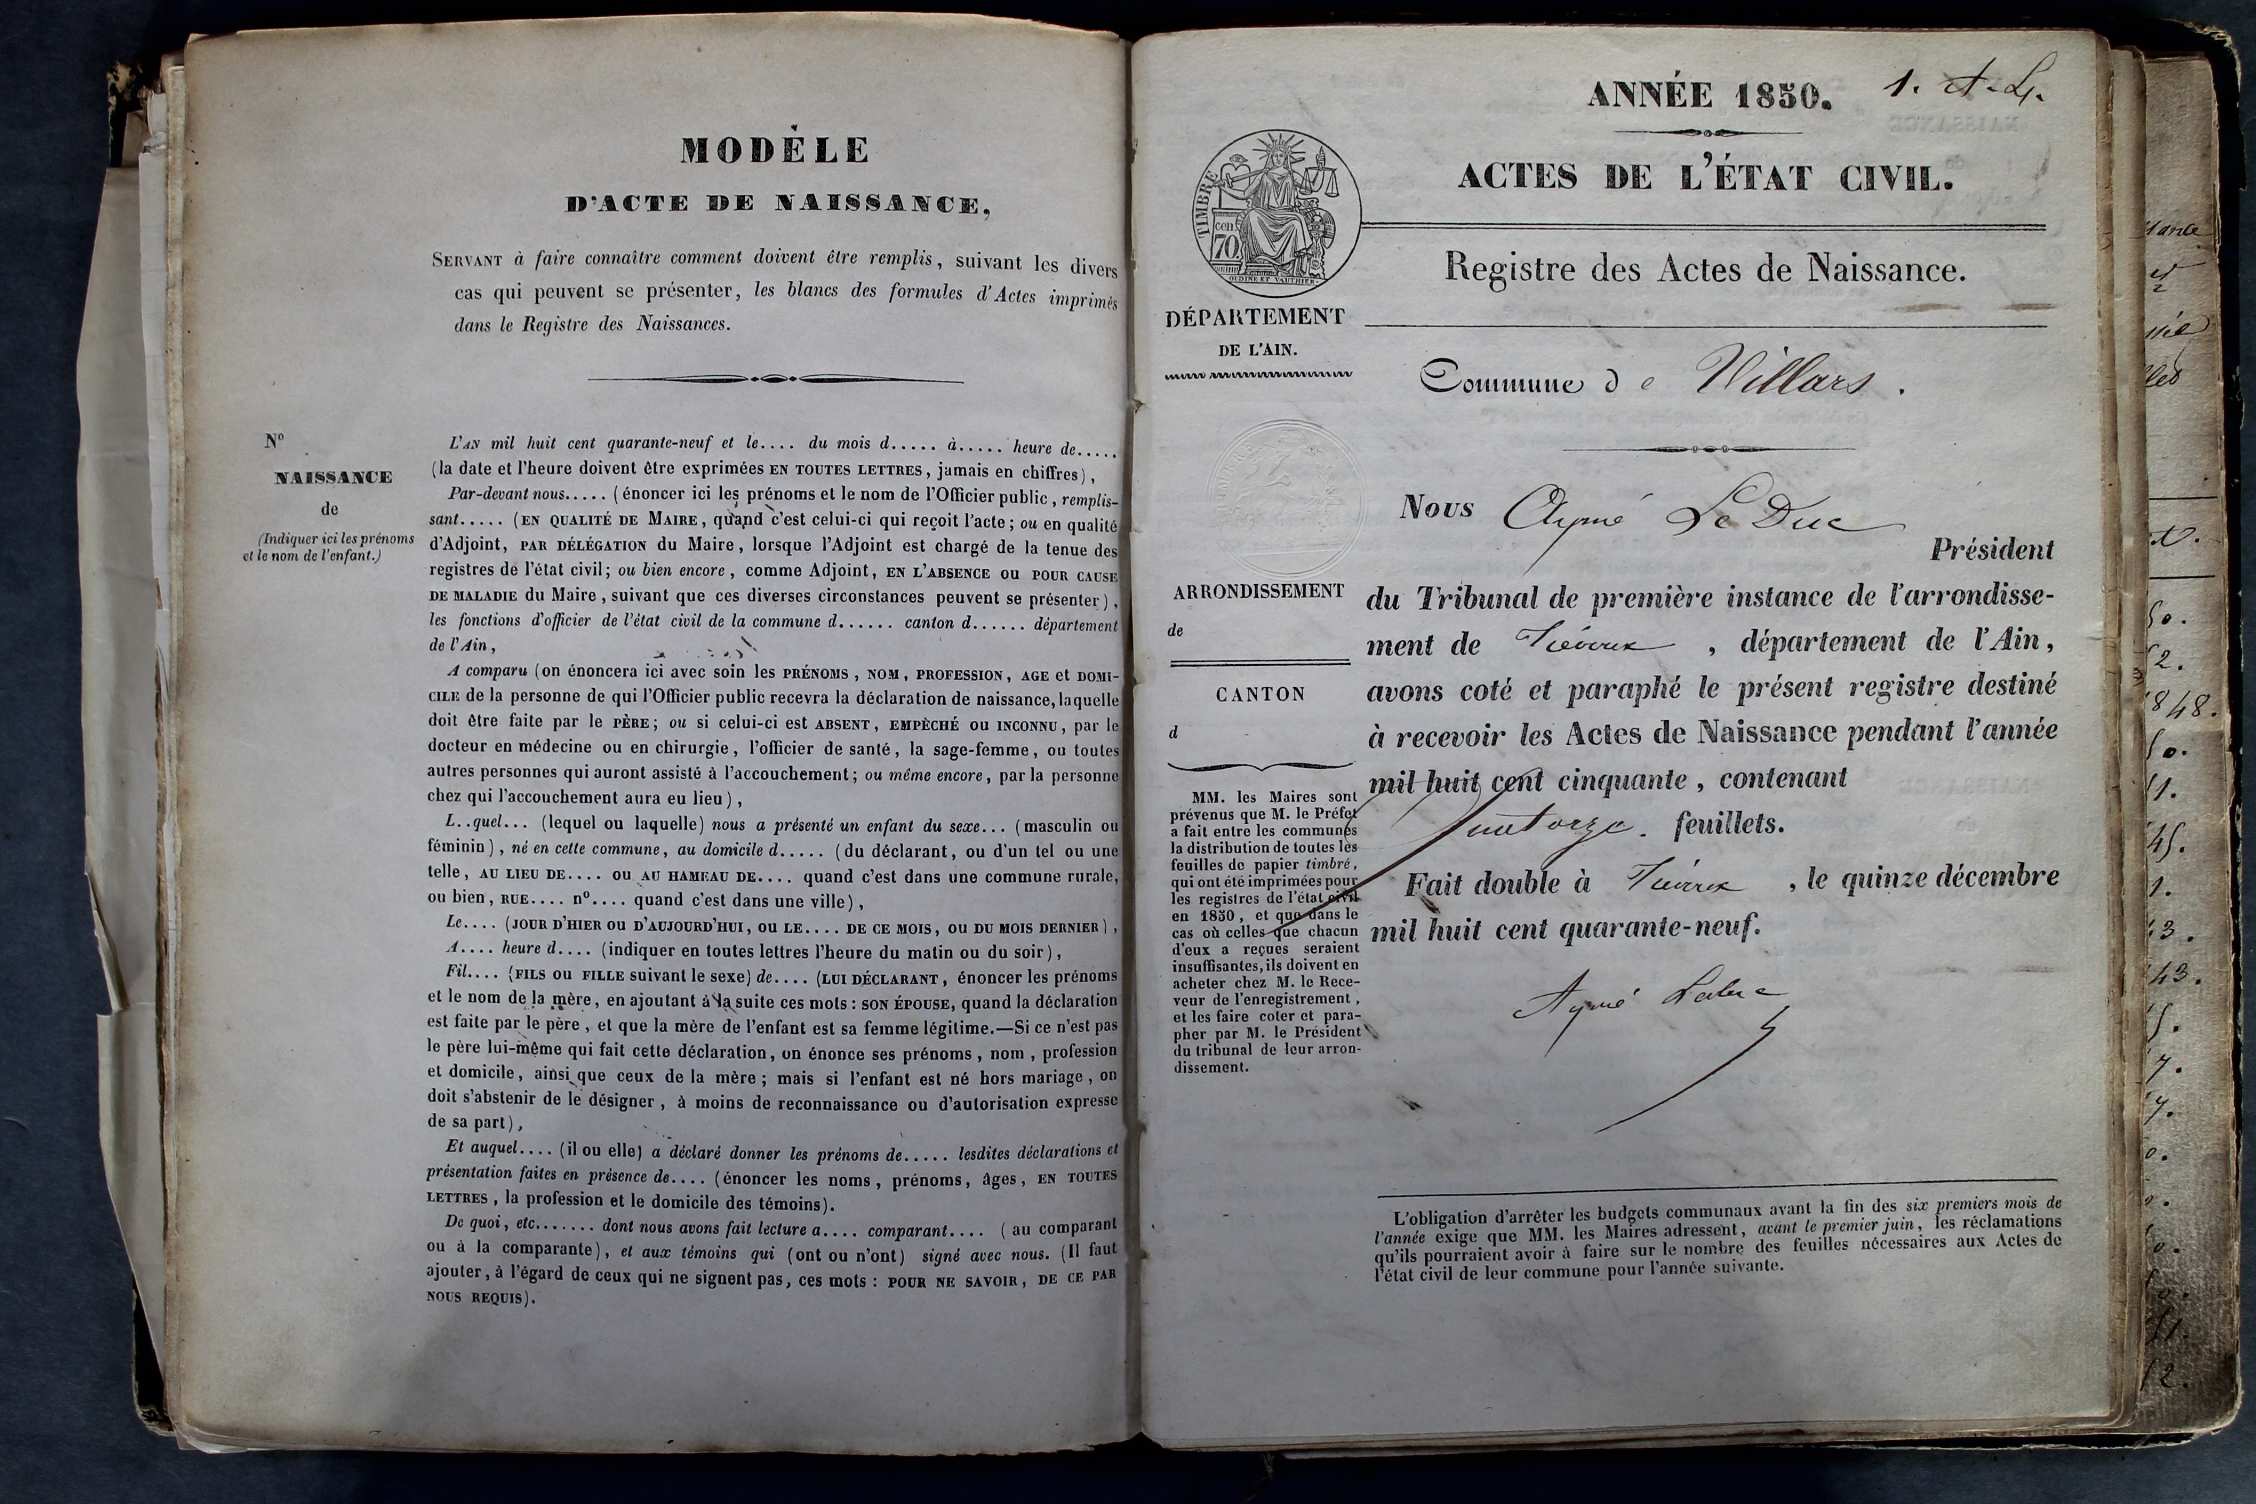 MODÈLE
D'ACTE DE NAISSANCE,
SERVANT à faire connaître comment doivent être remplis, suivant les divers
cas qui peuvent se présenter, les blancs des formules d'Actes imprimés
dans le Registre des Naissances.
No
NAISSANCE
de
(Indiquer ici les prénoms
et le nom de l'enfant.)
L'AN mil huit cent quarante-neuf et le.... du mois d..... à..... heure de.....
(la date et l'heure doivent être exprimées EN TOUTES LETTRES, jamais en chiffres),
Par-devant nous..... (énoncer ici les prénoms et le nom de l'Officier public, remplis-
sant..... (EN QUALITÉ DE MAIRE, quand c'est celui-ci qui reçoit l'acte; ou en qualité
d'Adjoint, PAR DÉLÉGATION du Maire, lorsque l'Adjoint est chargé de la tenue des
registres de l'état civil; ou bien encore, comme Adjoint, EN L'ABSENCE OU POUR CAUSE
DE MALADIE du Maire, suivant que ces diverses circonstances peuvent se présenter),
les fonctions d'officier de l'état civil de la commune d...... canton d...... département
de l'Ain,
A comparu (on énoncera ici avec soin les PRÉNOMS, NOM, PROFESSION, AGE et DOMI-
CILE de la personne de qui l'Officier public recevra la déclaration de naissance, laquelle
doit être faite par le PÈRE; ou si celui-ci est ABSENT, EMPÊCHÉ OU INCONNU, par le
docteur en médecine ou en chirurgie, l'officier de santé, la sage-femme, ou toutes
autres personnes qui auront assisté à l'accouchement; ou même encore, par la personne
chez qui l'accouchement aura eu lieu),
L..quel... (lequel ou laquelle) nous a présenté un enfant du sexe... (masculin ou
féminin), né en cette commune, au domicile d..... (du déclarant, ou d'un tel ou une
telle, AU LIEU DE.... OU AU HAMEAU DE.... quand c'est dans une commune rurale,
ou bien, RUE.... no.... quand c'est dans une ville),
Le.... (JOUR D'HIER OU D'AUJOURD'HUI, OU LE.... DE CE MOIS, OU DU MOIS DERNIER),
A.... heure d.... (indiquer en toutes lettres l'heure du matin ou du soir),
Fil.... (FILS OU FILLE suivant le sexe) de.... (LUI DÉCLARANT, énoncer les prénoms
et le nom de la mère, en ajoutant à la suite ces mots: SON ÉPOUSE, quand la déclaration
est faite par le père, et que la mère de l'enfant est sa femme légitime.—Si ce n'est pas
le père lui-même qui fait cette déclaration, on énonce ses prénoms, nom, profession
et domicile, ainsi que ceux de la mère; mais si l'enfant est né hors mariage, on
doit s'abstenir de le désigner, à moins de reconnaissance ou d'autorisation expresse
de sa part),
Et auquel.... (il ou elle) a déclaré donner les prénoms de..... lesdites déclarations et
présentation faites en présence de.... (énoncer les noms, prénoms, âges, EN TOUTES
LETTRES, la profession et le domicile des témoins).
De quoi, etc....... dont nous avons fait lecture a.... comparant.... (au comparant
ou à la comparante), et aux témoins qui (ont ou n'ont) signé avec nous. (Il faut
ajouter, à l'égard de ceux qui ne signent pas, ces mots: POUR NE SAVOIR, DE CE PAR
NOUS REQUIS).
ANNÉE 1850.
1. A. L.
ACTES DE L'ÉTAT CIVIL.
TIMBRE
cen
70
OUDINE ET VAUTHIER
Registre des Actes de Naissance.
DÉPARTEMENT
DE L'AIN.
Commune de Villars.
Nous Aymé Le Duc
Président
du Tribunal de première instance de l'arrondisse-
ment de Trévoux, département de l'Ain,
avons coté et paraphé le présent registre destiné
à recevoir les Actes de Naissance pendant l'année
mil huit cent cinquante, contenant
quatorze. feuillets.
Fait double à Trévoux, le quinze décembre
mil huit cent quarante-neuf.
Aymé Leduc
ARRONDISSEMENT
de
CANTON
d
MM. les Maires sont
prévenus que M. le Préfet
a fait entre les communes
la distribution de toutes les
feuilles de papier timbré,
qui ont été imprimées pour
les registres de l'état civil
en 1850, et que dans le
cas où celles que chacun
d'eux a reçues seraient
insuffisantes, ils doivent en
acheter chez M. le Rece-
veur de l'enregistrement,
et les faire coter et para-
pher par M. le Président
du tribunal de leur arron-
dissement.
L'obligation d'arrêter les budgets communaux avant la fin des six premiers mois de
l'année exige que MM. les Maires adressent, avant le premier juin, les réclamations
qu'ils pourraient avoir à faire sur le nombre des feuilles nécessaires aux Actes de
l'état civil de leur commune pour l'année suivante.